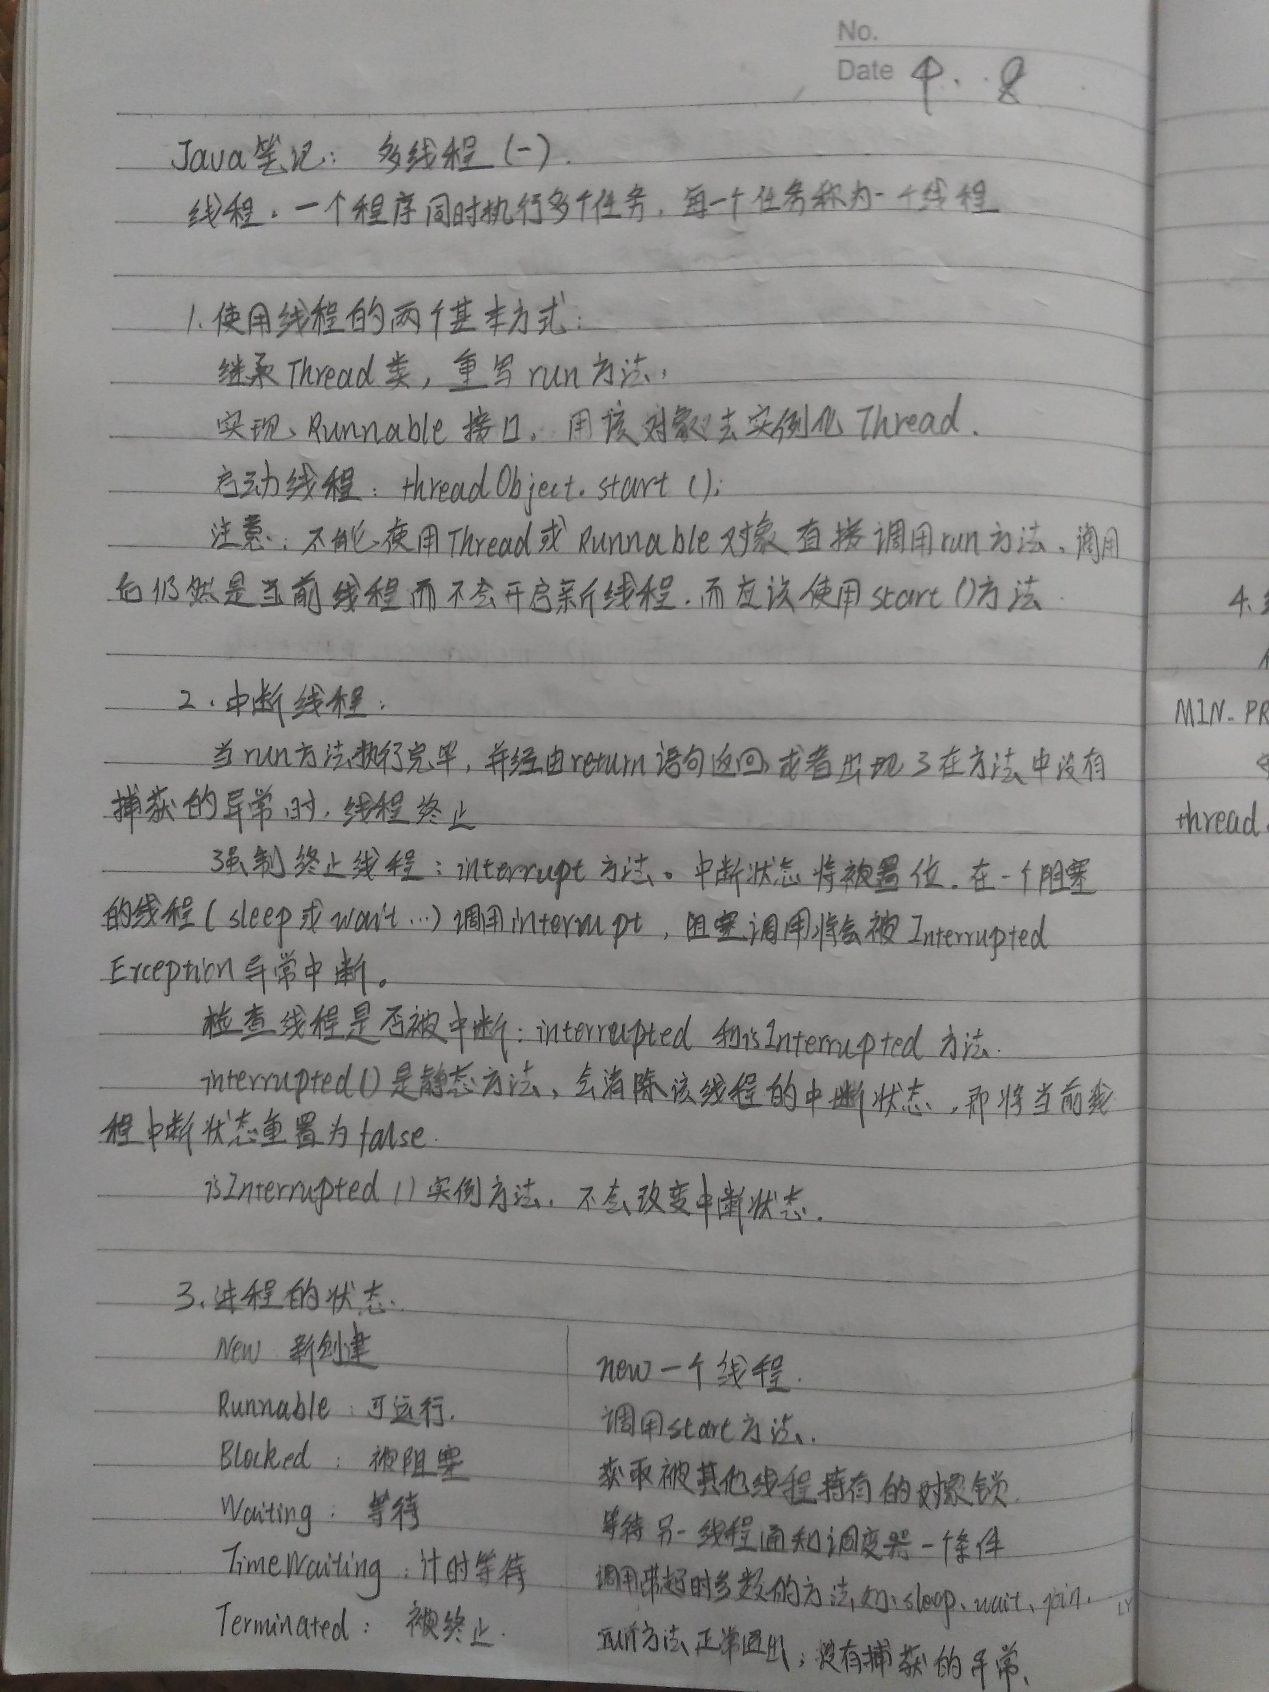 No.
Date 4. 8
Java笔记: 多线程 (一).
线程. 一个程序同时执行多个任务, 每一个任务称为一个线程
1. 使用线程的两个基本方式:
继承Thread类, 重写run方法,
实现Runnable接口, 用该对象去实例化Thread.
启动线程: threadObject.start();
注意: 不能使用Thread或Runnable对象直接调用run方法, 调用
后仍然是当前线程而不会开启新线程. 而应该使用start()方法
2. 中断线程:
当run方法执行完毕, 并经由return语句返回, 或者出现了在方法中没有
捕获的异常时, 线程终止
强制终止线程: interrupt方法。中断状态将被置位. 在一个阻塞
的线程(sleep或wait...)调用interrupt, 阻塞调用将会被Interrupted
Exception异常中断。
检查线程是否被中断: interrupted 和isInterrupted 方法.
interrupted()是静态方法, 会清除该线程的中断状态, 即将当前线
程中断状态重置为false.
isInterrupted()实例方法, 不会改变中断状态.
3. 进程的状态.
New 新创建 new一个线程.
Runnable: 可运行. 调用start方法.
Blocked: 被阻塞 获取被其他线程持有的对象锁.
Waiting: 等待 等待另一线程通知调度器一个条件
TimeWaiting: 计时等待 调用带超时参数的方法, 如: sleep、wait、join.
Terminated: 被终止. run方法正常退出; 没有捕获的异常.
4.
MIN_PR
thread.